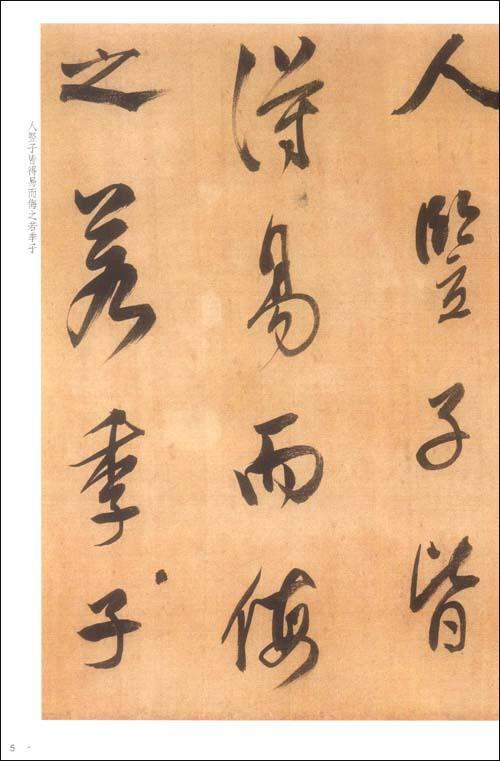 人竪子皆
得易而侮
之若季子
人竪子皆得易而侮之若季子
5